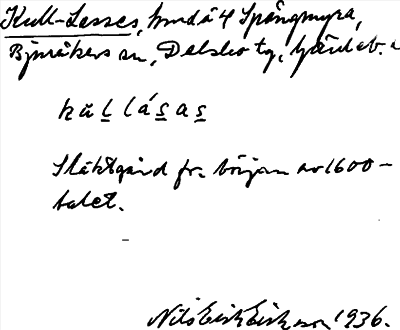 Kull-Lasses, hmd å 4 Spångmyra,
Bjuråkers sn, Delsbo tg, Gävleb. l
kŭl lásas
Släktgård fr. början av 1600-
talet.
Nils Erik Eriksson 1936.